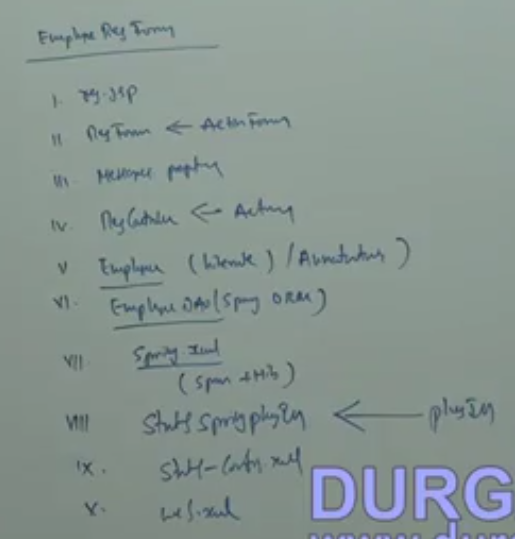 Employee Reg Form
I. reg.jsp
II RegForm ← ActionForm
III. Message property
IV. RegController ← Action
V Employee (hibernate) / Annotations )
VI. EmployeeDAO (Spring ORM)
VII Spring xml
(Spring + Hib)
VIII Struts Spring plugIn ← plugIn
IX. Struts-config.xml
X. web.xml
DURG